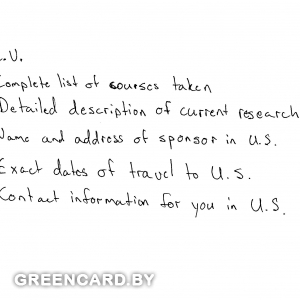 .V.
Complete list of courses taken
Detailed description of current research
Name and address of sponsor in U.S.
Exact dates of travel to U.S.
Contact information for you in U.S.
GREENCARD.BY